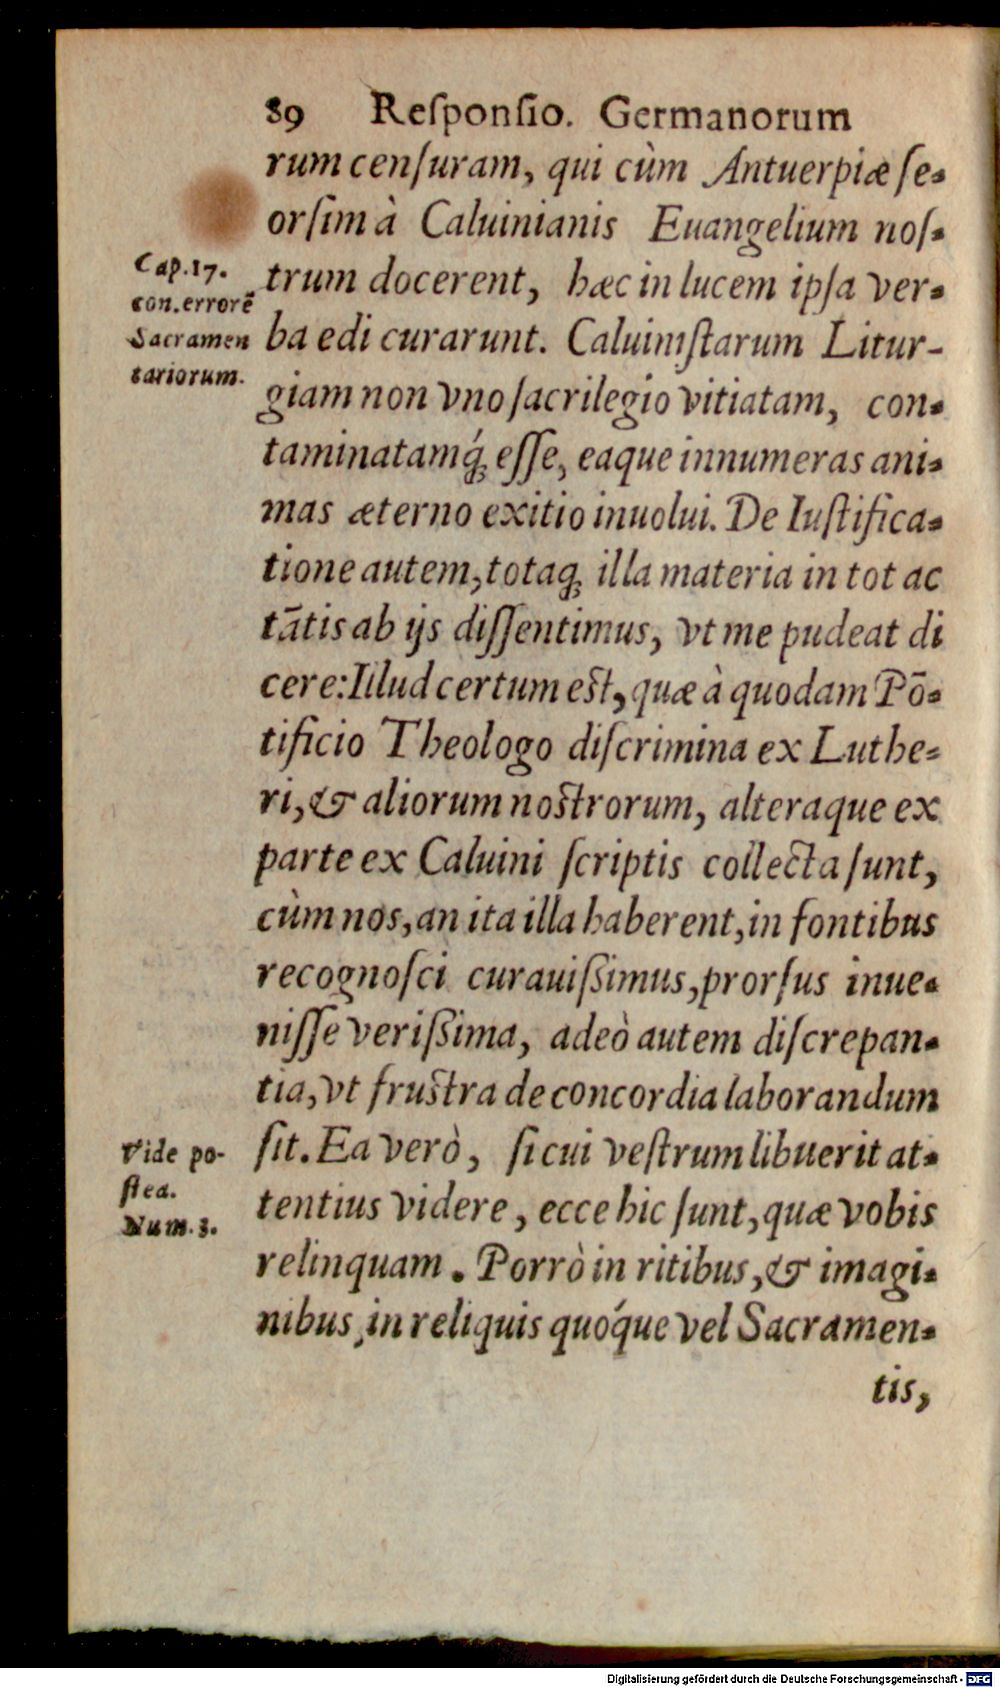 89 Reſponſio. Germanorum
rum cenſuram, qui cùm Antuerpiæ ſe-
orſim à Caluinianis Euangelium noſ-
trum docerent, hæc in lucem ipſa ver-
ba edi curarunt. Caluiniſtarum Litur-
giam non vno ſacrilegio vitiatam, con-
taminatamq́; eſſe, eaque innumeras ani-
mas æterno exitio inuolui. De Iuſtifica-
tione autem, totaq; illa materia in tot ac
tātis ab ijs diſſentimus, vt me pudeat di
cere: Illud certum eſt, quæ à quodam Pō-
tificio Theologo diſcrimina ex Luthe-
ri, & aliorum noſtrorum, alteraque ex
parte ex Caluini ſcriptis collecta ſunt,
cùm nos, an ita illa haberent, in fontibus
recognoſci curauiſsimus, prorſus inue-
niſſe veriſsima, adeò autem diſcrepan-
tia, vt fruſtra de concordia laborandum
ſit. Ea verò, ſi cui veſtrum libuerit at-
tentius videre, ecce hic ſunt, quæ vobis
relinquam. Porrò in ritibus, & imagi-
nibus, in reliquis quóque vel Sacramen-
tis,
Cap. 17.
con. errorē
Sacramen
tariorum.
Vide po-
ſtea.
Num. 3.
Digitalisierung gefördert durch die Deutsche Forschungsgemeinschaft - DFG